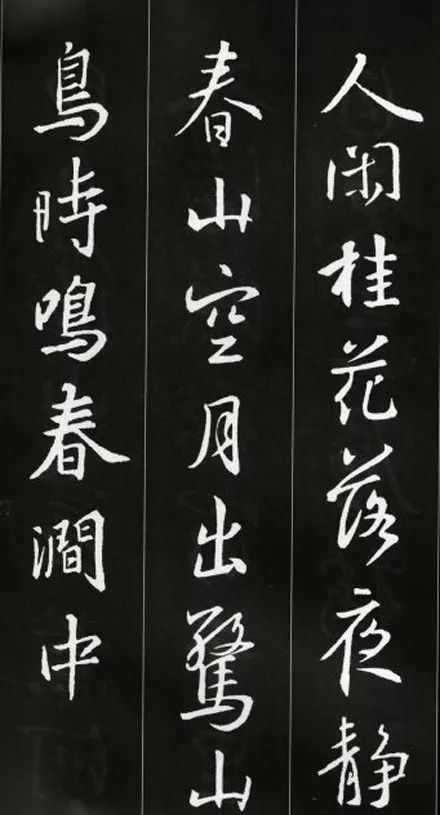 人闲桂花落夜静
春山空月出驚山
鳥時鳴春澗中